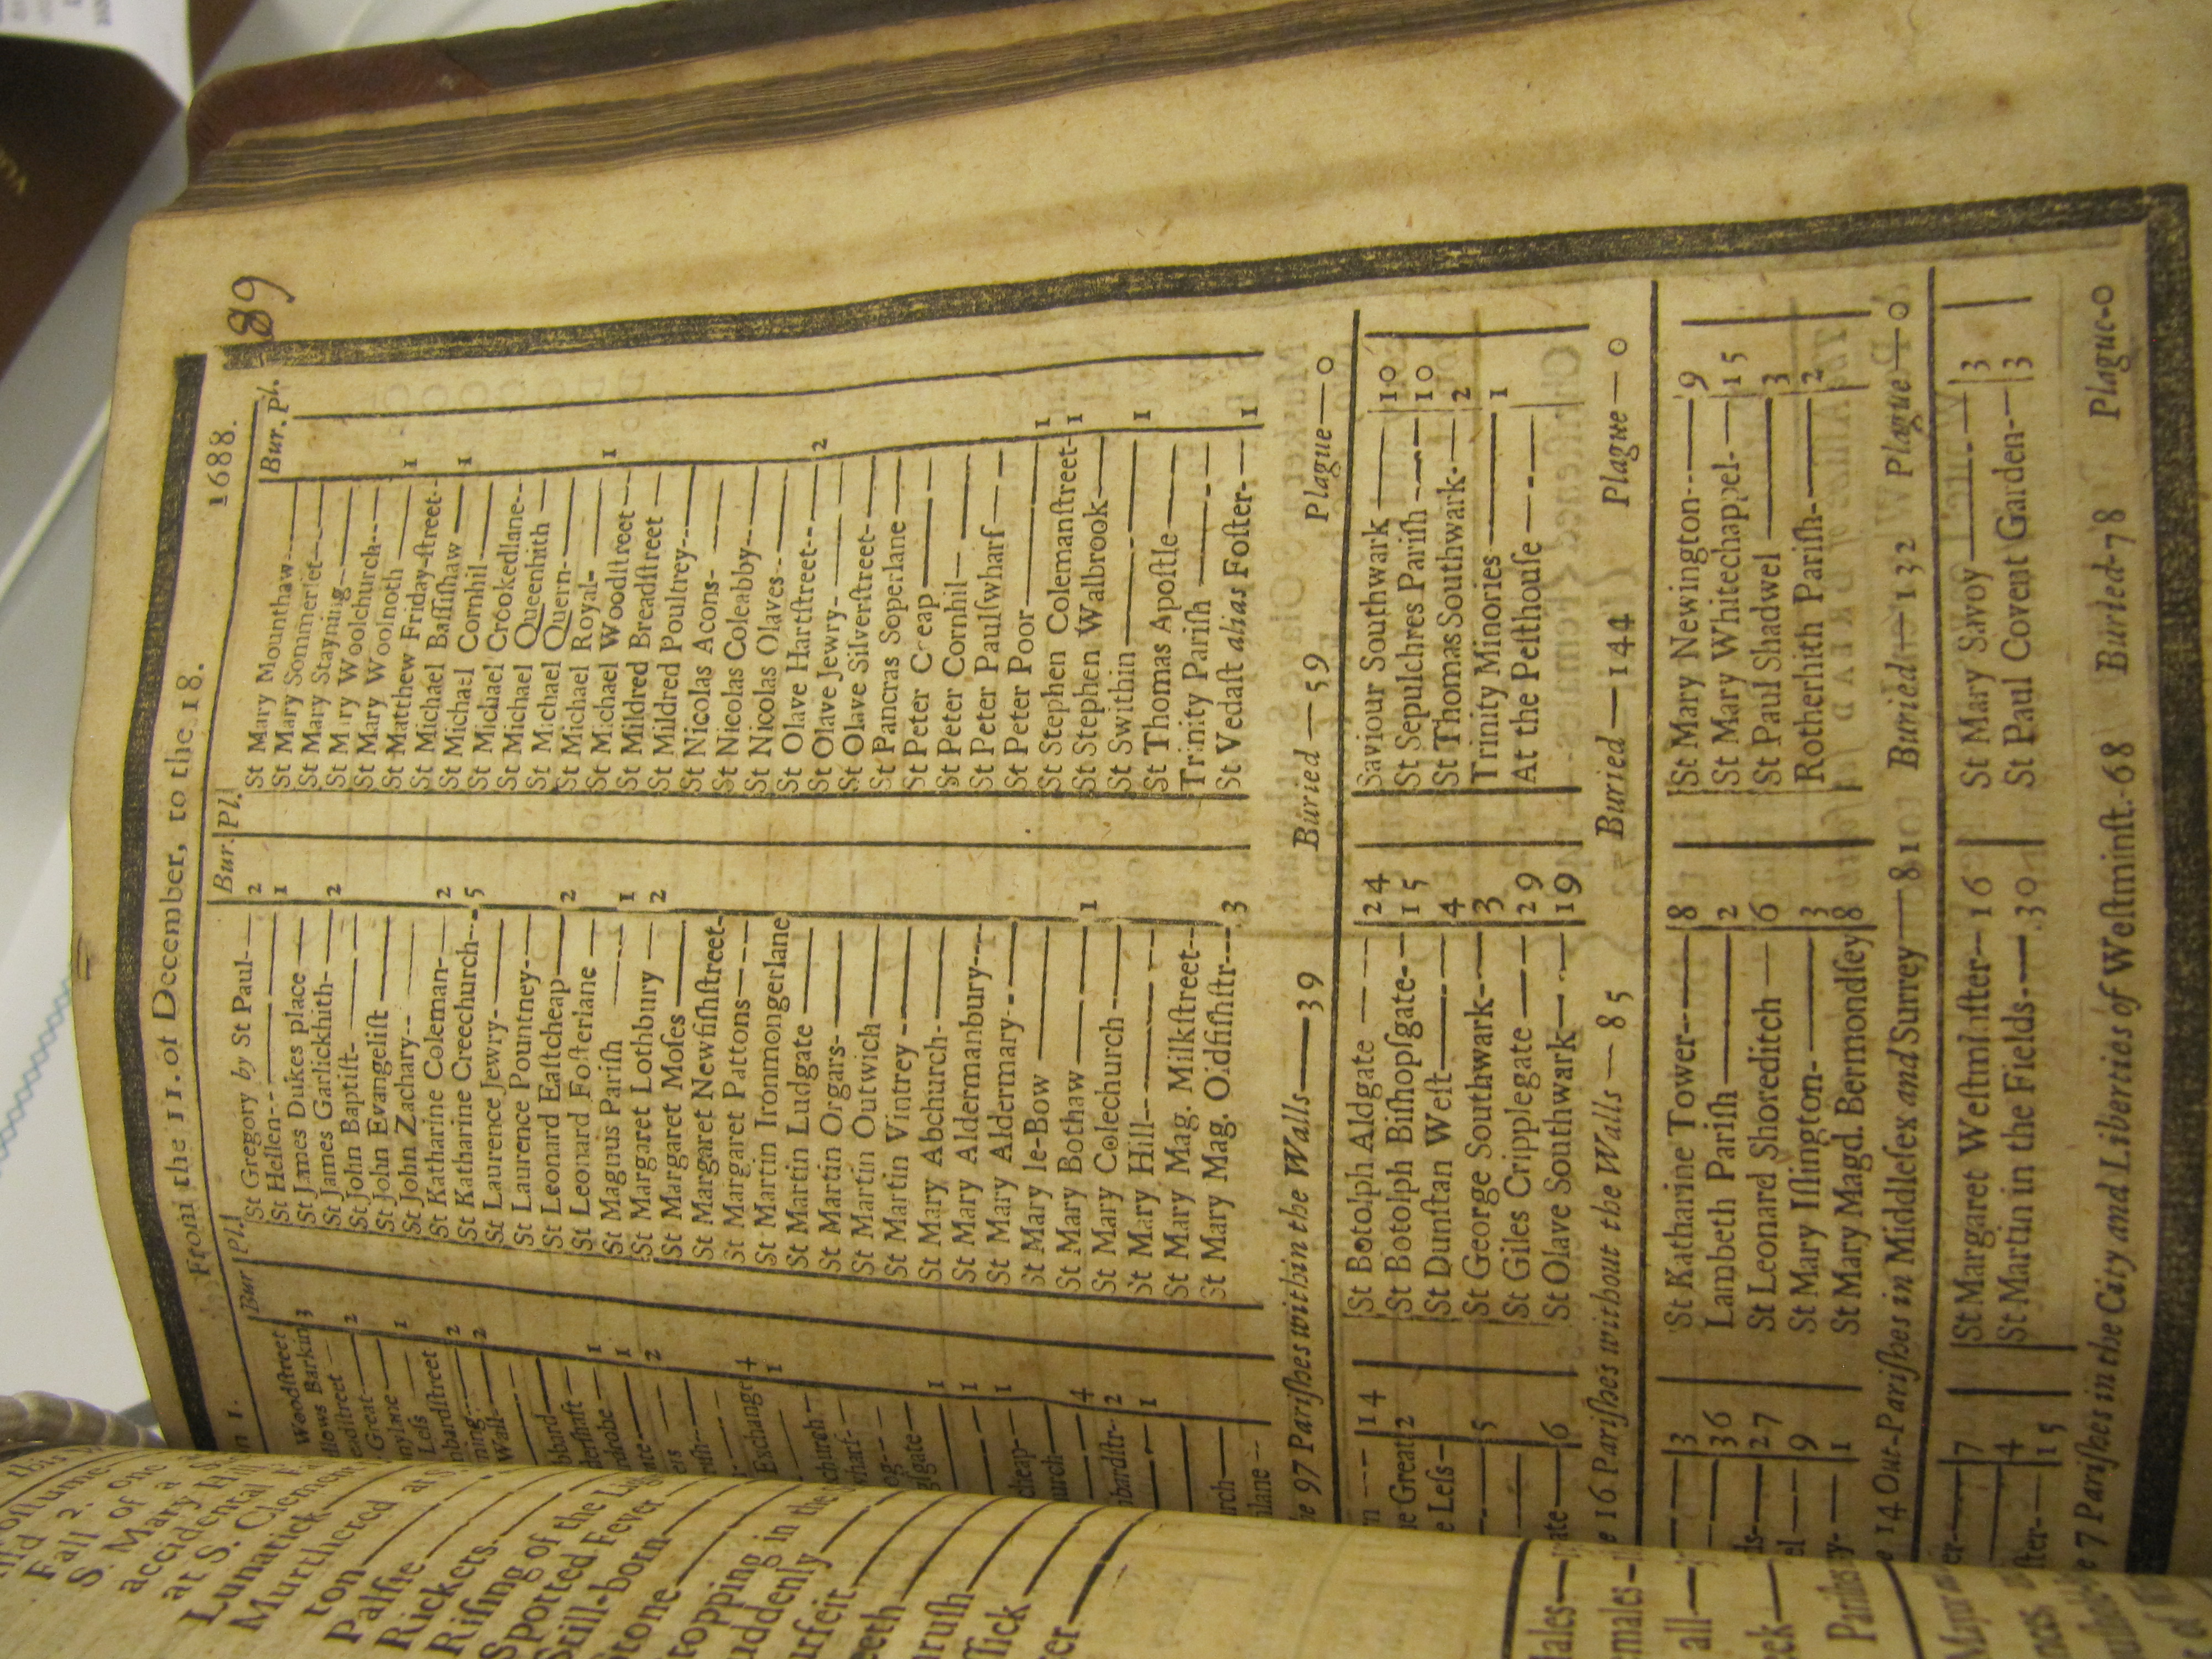 89
From the 11. of December, to the 18. 1688.
Bur. Pl.
Woodſtreet
llows Barkin 3
eadſtreet —
Great — 2
nylane —
Leſs — 1
nbardſtreet
ning — 2
Wall — 2
bbard —
derſhaft —
drobe — 1
ate — 1
ers — 2
Exchange 4
1
church —
wharf —
lgate —
1
1
cheap — 1
urch —
4
nbardſtr-- 2
1
rch —
lane --
Bur. Pl.
St Gregory by St Paul-— 2
St Hellen-- — 1
St James Dukes place —
St James Garlickhith- — 2
St John Baptiſt- —
St John Evangeliſt —
St John Zachary-- —
St Katharine Coleman-— 2
St Katharine Creechurch--- 5
St Laurence Jewry- —
St Laurence Pountney-—
St Leonard Eaſtcheap — 2
St Leonard Foſterlane —
St Magnus Pariſh — 1
St Margaret Lothbury — 2
St Margaret Moſes —
St Margaret Newfiſhſtreet-
St Margaret Pattons-—
St Martin Ironmongerlane
St Martin Ludgate —
St Martin Orgars- —
St Martin Outwich —
St Martin Vintrey - —
St Mary Abchurch- —
St Mary Aldermanbury---
St Mary Aldermary-- —
St Mary le-Bow —
St Mary Bothaw — 1
St Mary Colechurch - —
St Mary Hill-- —
St Mary Mag. Milkſtreet--
St Mary Mag. Oldfiſhſtr--- 3
Bur. Pl.
St Mary Mounthaw-- —
St Mary Sommerſet —
St Mary Stayning - —
St Mary Woolchurch-- —
St Mary Woolnoth —
St Matthew Friday-ſtreet- 1
St Michael Baſſiſhaw —
St Michael Cornhil — 1
St Michael Crookedlane--
St Michael Queenhith —
St Michael Quern- —
St Michael Royal- —
St Michael Woodſtreet — 1
St Mildred Breadſtreet —
St Mildred Poultrey-- —
St Nicolas Acons- —
St Nicolas Coleabby-- —
St Nicolas Olaves-- —
St Olave Hartſtreet-- — 2
St Olave Jewry —
St Olave Silverſtreet-- —
St Pancras Soperlane —
St Peter Cheap —
St Peter Cornhil — —
St Peter Paulſwharf — —
St Peter Poor —
St Stephen Colemanſtreet- 1
St Stephen Walbrook — 1
St Swithin —
St Thomas Apoſtle — 1
Trinity Pariſh —
St Vedaſt alias Foſter- — 1
97 Pariſhes within the Walls — 39 Buried — 59 Plague — 0
14
Great 2
Leſs-
5
ate — 6
St Botolph Aldgate — 24
St Botolph Biſhopſgate- — 15
St Dunſtan Weſt — 4
St George Southwark- — 3
St Giles Cripplegate — 29
St Olave Southwark — 19
Saviour Southwark — 10
St Sepulchres Pariſh — 10
St Thomas Southwark- — 2
Trinity Minories — 1
At the Peſthouſe —
16 Pariſhes without the Walls — 85 Buried — 144 Plague — 0
3
36
27
9
1
St Katharine Tower-- — 8
Lambeth Pariſh — 2
St Leonard Shoreditch — 6
St Mary Iſlington- — 3
St Mary Magd. Bermondſey 8
St Mary Newington-- — 9
St Mary Whitechappel- — 15
St Paul Shadwel — 3
Rotherhith Pariſh- — 2
14 Out-Pariſhes in Middleſex and Surrey — 81 Buried — 132 Plague — 0
7
4
15
St Margaret Weſtminſter-- 16
St Martin in the Fields-— 30
St Mary Savoy — 3
St Paul Covent Garden-— 3
7 Pariſhes in the City and Liberties of Weſtminſt.-68 Buried-78 Plague-0
Fall 2. one
S. Mary
accidental
at S. Clement
Lunatick
Murthered at S.
ton
Palſie
Rickets
Riſing of the
Spotted Fever
Still-born
topping in the
uddenly
urfeit
eeth